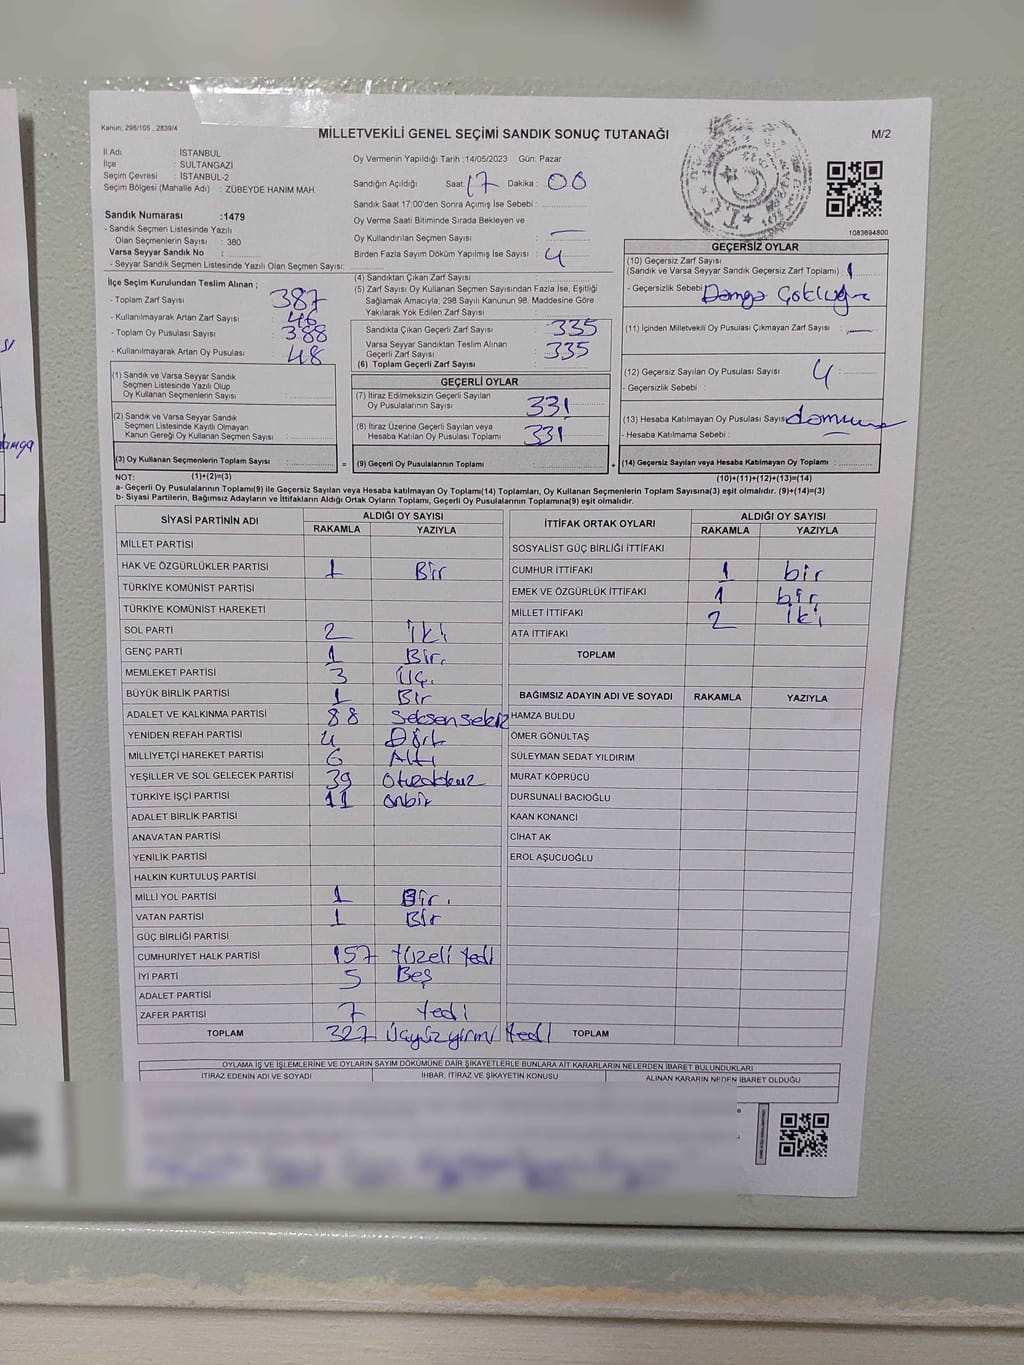 Kanun; 298/105 , 2839/4
MİLLETVEKİLİ GENEL SEÇİMİ SANDIK SONUÇ TUTANAĞI
M/2
İl Adı : İSTANBUL
İlçe : SULTANGAZİ
Seçim Çevresi : İSTANBUL-2
Seçim Bölgesi (Mahalle Adı) : ZÜBEYDE HANIM MAH.
Sandık Numarası :1479
- Sandık Seçmen Listesinde Yazılı
Olan Seçmenlerin Sayısı : 380
Varsa Seyyar Sandık No :
- Seyyar Sandık Seçmen Listesinde Yazılı Olan Seçmen Sayısı:
İlçe Seçim Kurulundan Teslim Alınan ;
- Toplam Zarf Sayısı 387
- Kullanılmayarak Artan Zarf Sayısı : 46
- Toplam Oy Pusulası Sayısı 388
- Kullanılmayarak Artan Oy Pusulası : 48
(1) Sandık ve Varsa Seyyar Sandık
Seçmen Listesinde Yazılı Olup
Oy Kullanan Seçmenlerin Sayısı :
(2) Sandık ve Varsa Seyyar Sandık
Seçmen Listesinde Kayıtlı Olmayan
Kanun Gereği Oy Kullanan Seçmen Sayısı :
(3) Oy Kullanan Seçmenlerin Toplam Sayısı :
Oy Vermenin Yapıldığı Tarih :14/05/2023 Gün: Pazar
Sandığın Açıldığı Saat: 17 Dakika : 00
Sandık Saat 17:00'den Sonra Açımış İse Sebebi :
Oy Verme Saati Bitiminde Sırada Bekleyen ve
Oy Kullandırılan Seçmen Sayısı : —
Birden Fazla Sayım Döküm Yapılmış İse Sayısı : 4
(4) Sandıktan Çıkan Zarf Sayısı :
(5) Zarf Sayısı Oy Kullanan Seçmen Sayısından Fazla İse, Eşitliği
Sağlamak Amacıyla; 298 Sayılı Kanunun 98. Maddesine Göre
Yakılarak Yok Edilen Zarf Sayısı :
Sandıkta Çıkan Geçerli Zarf Sayısı : 335
Varsa Seyyar Sandıktan Teslim Alınan
Geçerli Zarf Sayısı : 335
(6) Toplam Geçerli Zarf Sayısı :
GEÇERLİ OYLAR
(7) İtiraz Edilmeksizin Geçerli Sayılan
Oy Pusulalarının Sayısı : 331
(8) İtiraz Üzerine Geçerli Sayılan veya
Hesaba Katılan Oy Pusulası Toplamı : 331
= (9) Geçerli Oy Pusulalarının Toplamı :
1083694800
GEÇERSİZ OYLAR
(10) Geçersiz Zarf Sayısı
(Sandık ve Varsa Seyyar Sandık Geçersiz Zarf Toplamı) : 1
- Geçersizlik Sebebi : Damga
(11) İçinden Milletvekili Oy Pusulası Çıkmayan Zarf Sayısı : —
(12) Geçersiz Sayılan Oy Pusulası Sayısı : 4
- Geçersizlik Sebebi :
(13) Hesaba Katılmayan Oy Pusulası Sayısı
- Hesaba Katılmama Sebebi :
+ (14) Geçersiz Sayılan veya Hesaba Katılmayan Oy Toplamı :
NOT: (1)+(2)=(3) (10)+(11)+(12)+(13)=(14)
a- Geçerli Oy Pusulalarının Toplamı(9) ile Geçersiz Sayılan veya Hesaba katılmayan Oy Toplamı(14) Toplamları, Oy Kullanan Seçmenlerin Toplam Sayısına(3) eşit olmalıdır. (9)+(14)=(3)
b- Siyasi Partilerin, Bağımsız Adayların ve İttifakların Aldığı Ortak Oyların Toplamı, Geçerli Oy Pusulalarının Toplamına(9) eşit olmalıdır.
SİYASİ PARTİNİN ADI ALDIĞI OY SAYISI
RAKAMLA YAZIYLA
MİLLET PARTİSİ
HAK VE ÖZGÜRLÜKLER PARTİSİ 1 Bir
TÜRKİYE KOMÜNİST PARTİSİ
TÜRKİYE KOMÜNİST HAREKETİ
SOL PARTİ 2 İki
GENÇ PARTİ 1 Bir.
MEMLEKET PARTİSİ 3 Üç.
BÜYÜK BİRLİK PARTİSİ 1 Bir
ADALET VE KALKINMA PARTİSİ 88 Seksen sekiz
YENİDEN REFAH PARTİSİ 4 Dört
MİLLİYETÇİ HAREKET PARTİSİ 6 Altı
YEŞİLLER VE SOL GELECEK PARTİSİ 39 Otuzdokuz
TÜRKİYE İŞÇİ PARTİSİ 11 onbir
ADALET BİRLİK PARTİSİ
ANAVATAN PARTİSİ
YENİLİK PARTİSİ
HALKIN KURTULUŞ PARTİSİ
MİLLİ YOL PARTİSİ 1 Bir.
VATAN PARTİSİ 1 Bir
GÜÇ BİRLİĞİ PARTİSİ
CUMHURİYET HALK PARTİSİ 157 Yüzelli Yedi
İYİ PARTİ 5 Beş
ADALET PARTİSİ
ZAFER PARTİSİ 7 Yedi
TOPLAM 327 Üçyüzyirmi Yedi
İTTİFAK ORTAK OYLARI ALDIĞI OY SAYISI
RAKAMLA YAZIYLA
SOSYALİST GÜÇ BİRLİĞİ İTTİFAKI
CUMHUR İTTİFAKI 1 bir
EMEK VE ÖZGÜRLÜK İTTİFAKI 1 bir
MİLLET İTTİFAKI 2 iki
ATA İTTİFAKI
TOPLAM
BAĞIMSIZ ADAYIN ADI VE SOYADI RAKAMLA YAZIYLA
HAMZA BULDU
ÖMER GÖNÜLTAŞ
SÜLEYMAN SEDAT YILDIRIM
MURAT KÖPRÜCÜ
DURSUNALİ BACIOĞLU
KAAN KONANCİ
CİHAT AK
EROL AŞUCUOĞLU
TOPLAM
OYLAMA İŞ VE İŞLEMLERİNE VE OYLARIN SAYIM DÖKÜMÜNE DAİR ŞİKAYETLERLE BUNLARA AİT KARARLARIN NELERDEN İBARET BULUNDUKLARI
İTİRAZ EDENİN ADI VE SOYADI İHBAR, İTİRAZ VE ŞİKAYETİN KONUSU ALINAN KARARIN NEDEN İBARET OLDUĞU